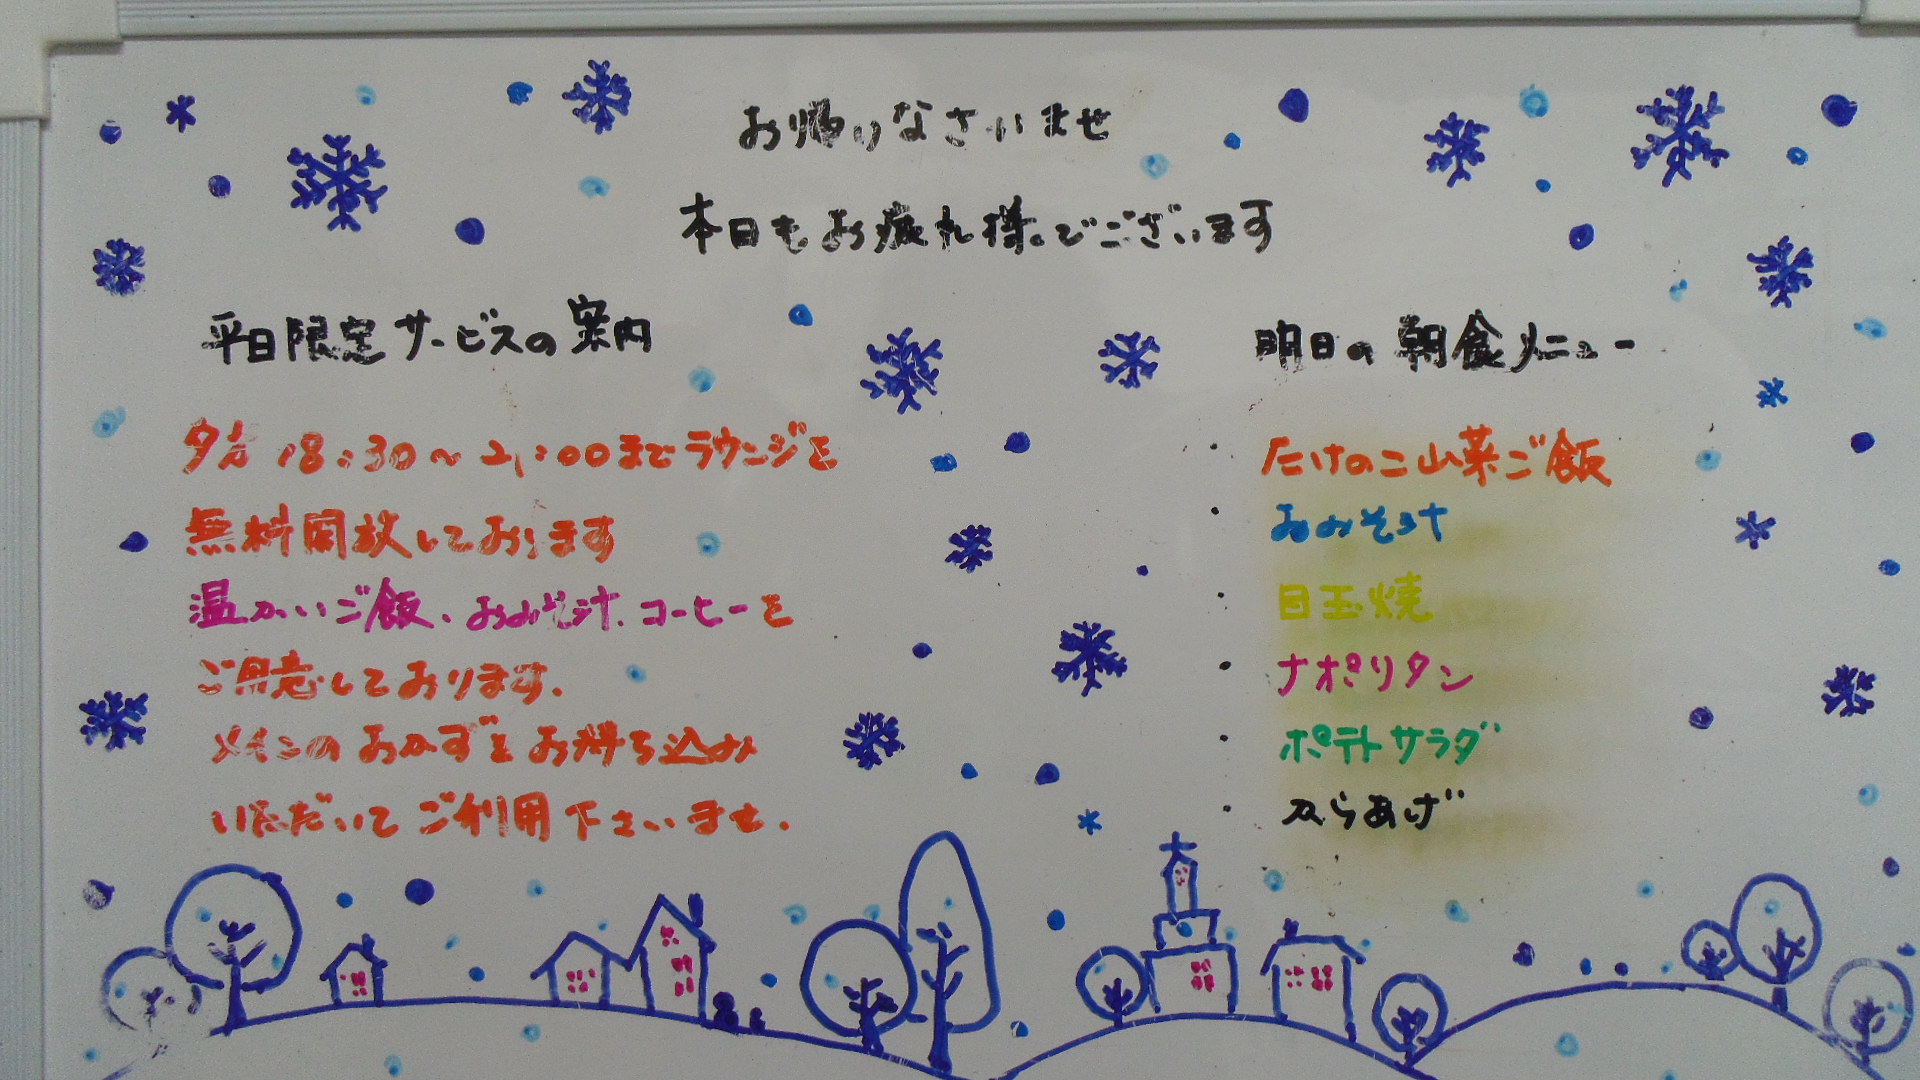 お帰りなさいませ
本日もお疲れ様でございます
平日限定サービスの案内
夕方 18:30～21:00までラウンジを
無料開放しております
温かいご飯、おみそ汁、コーヒーを
ご用意しております.
メインのおかずをお持ち込み
いただいてご利用下さいませ.
明日の朝食メニュー
・たけのこ山菜ご飯
・おみそ汁
・目玉焼
・ナポリタン
・ポテトサラダ
・からあげ